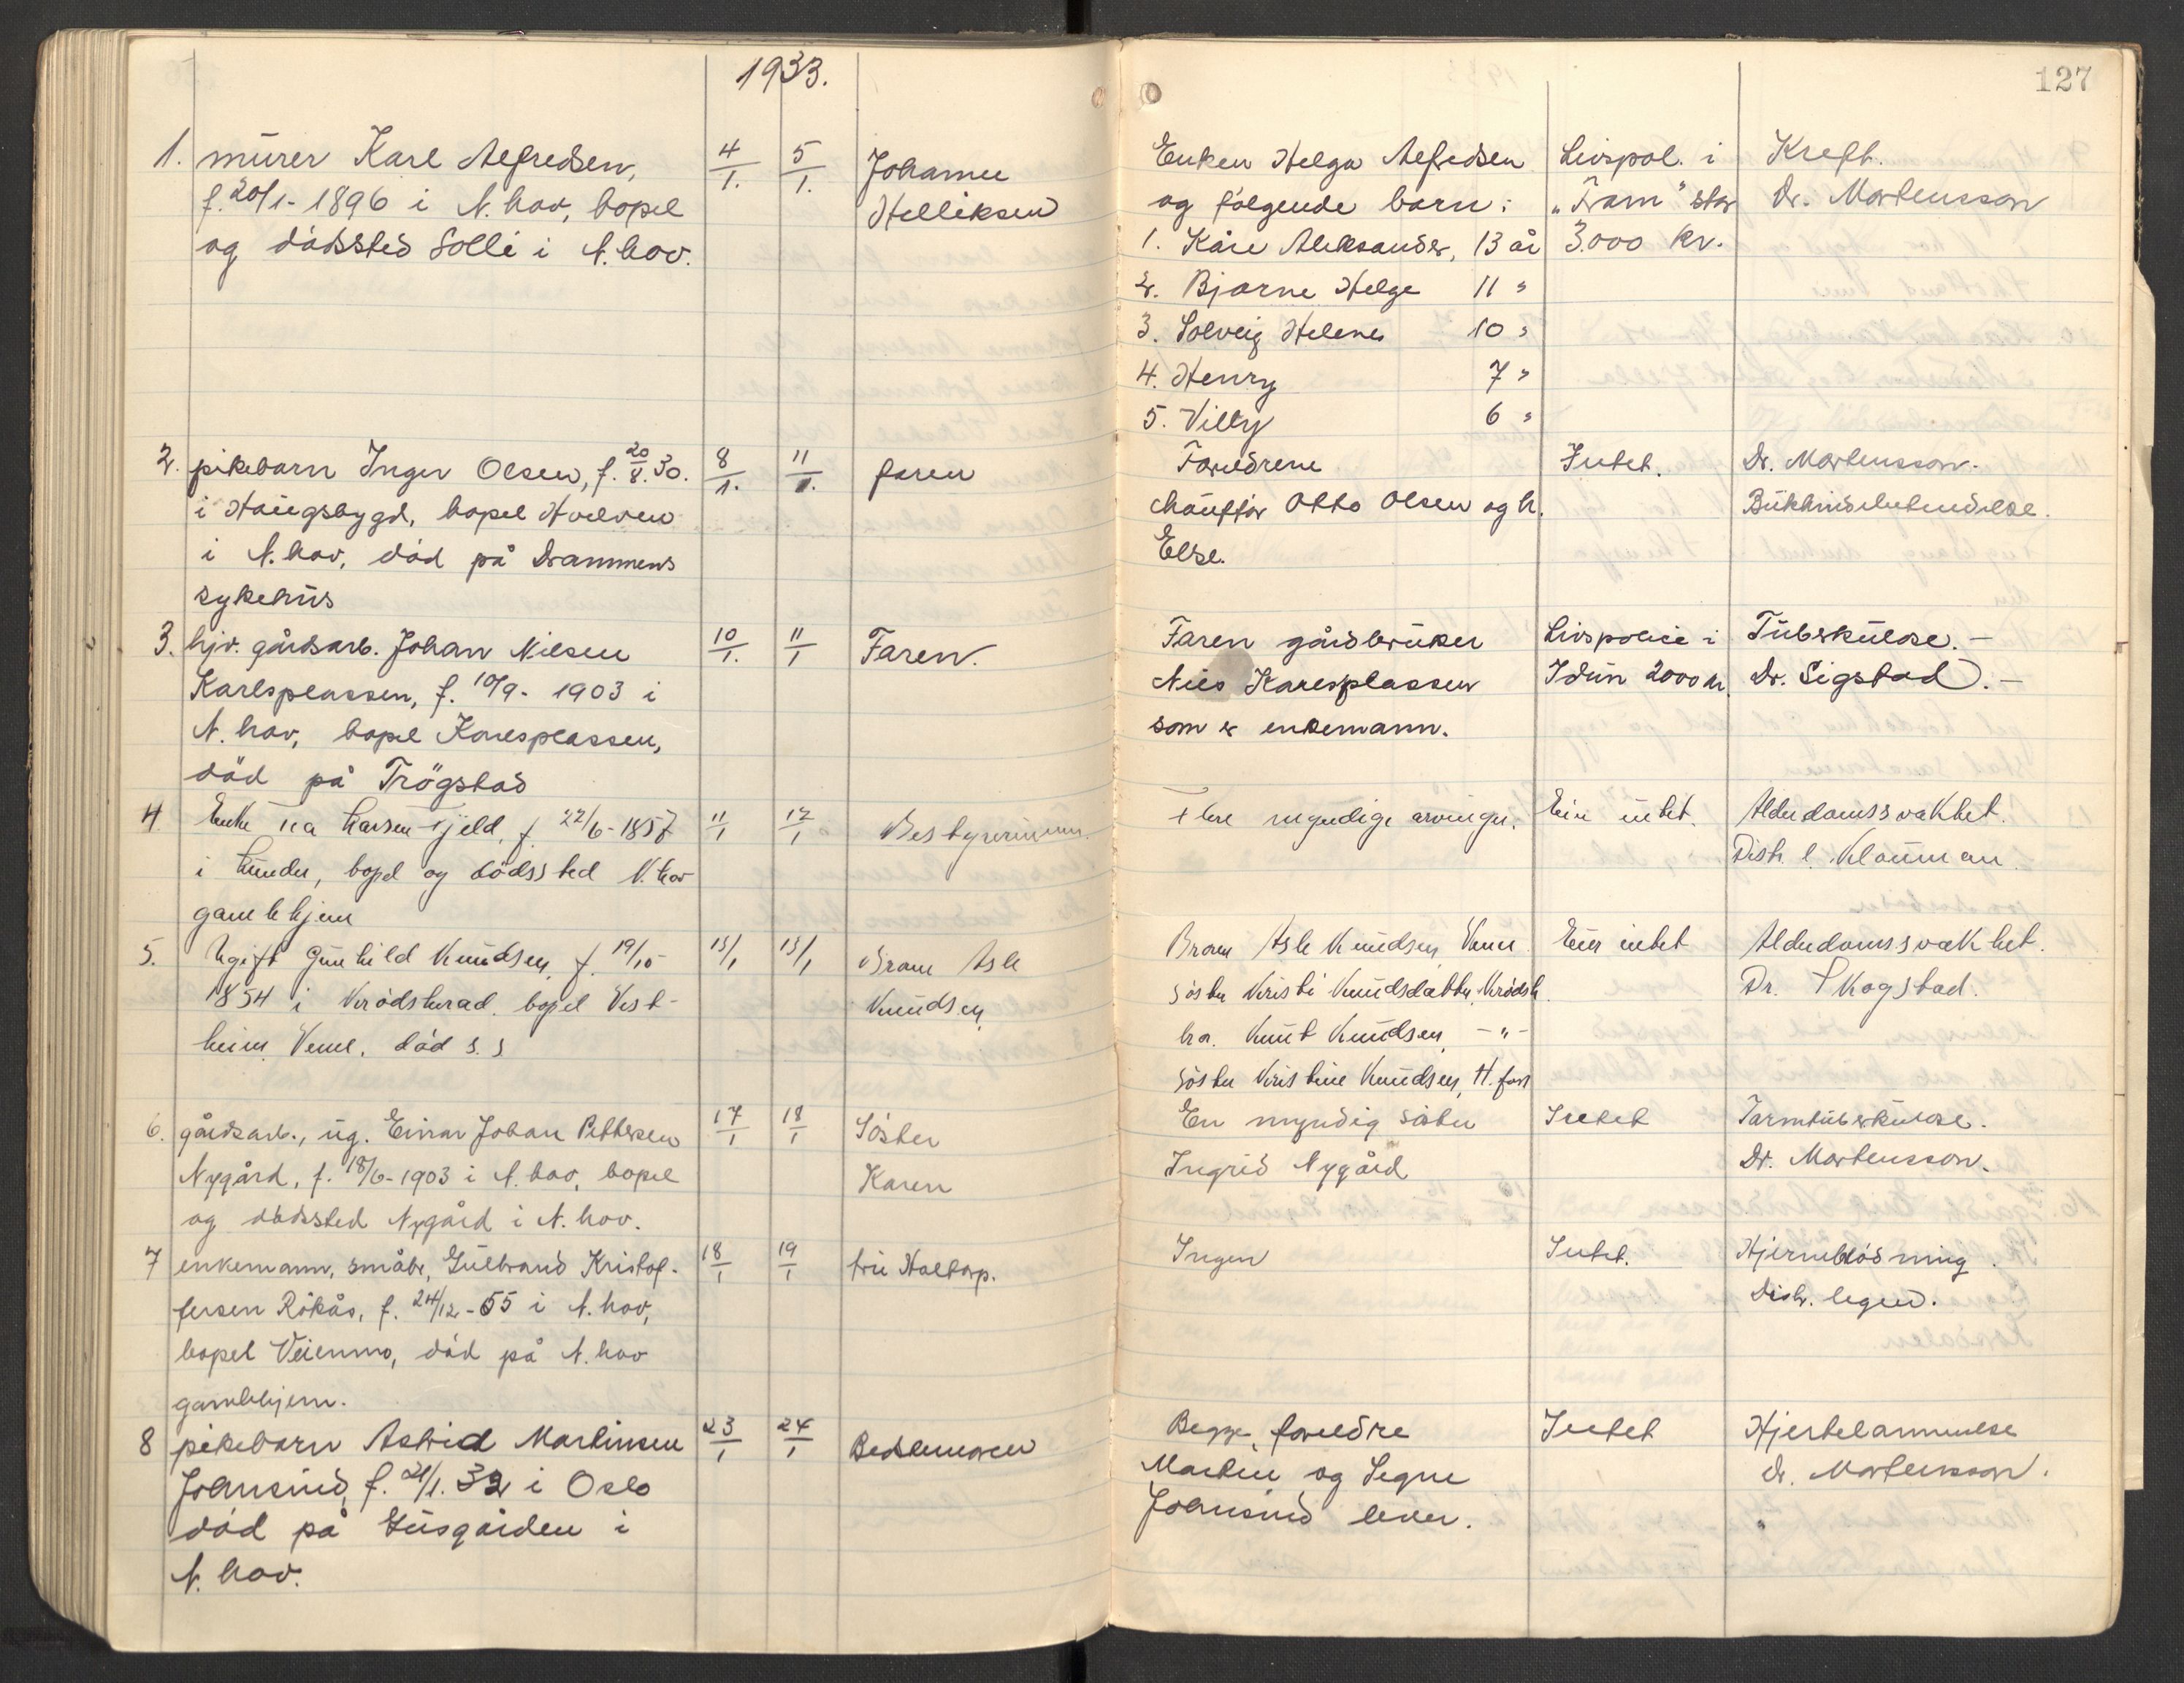 1933.
127
1. murer Karl Alfredsen,
f. 20/1- 1896 i N. hov, bopel
og dödssted Solli i N. hov.
4/1. 5/1.
Johanne
Helliksen
Enken Helga Alfredsen
og fölgende barn:
1. Kåre Aleksander, 13 år
2. Bjarne Helge 11 "
3. Solveig Helene 10 "
4. Henry 7 "
5. Villy 6 "
Livspol. i
"Fram" stor
3.000 kr.
Kreft.
Dr. Martensson
2. pikebarn Inger Olsen, f. 20/8. 30.
i Haugsbygd, bopel Hvelven
i N. hov, död på Drammens
sykehus
8/1. 11/1.
faren
Foreldrene
chaufför Otto Olsen og h.
Else.
Intet.
Dr. Martensson.
Bukhindebetendelse.
3. hjv. gårdsarb. Johan Nilsen
Karlsplassen, f. 10/9- 1903 i
N. hov, bopel Karlsplassen,
död på Trögstad
10/1. 11/1
Faren.
Faren gårdbruker
Nils Karlsplassen
som er enkemann.
Livspolice i
Idun 2000 kr.
Tuberkulose. -
Dr. Sigstad. -
4. Enke Larsen Fjeld, f. 22/6-1857
i Lunder, bopel og dödssted N. hov
gamlehjem
11/1 12/1
Bestyrerinnen
Flere myndige arvinger.
Eier intet.
Alderdomssvakhet.
Distr. l. Klouman
5. Ugift Gunhild Knudsen f. 19/10-
1854 i Krödsherad. bopel Vest-
heim Veme, död s. s
13/1 13/1
Broren Asle
Knudsen
Broren Asle Knudsen Veme
söster Kristi Knudsdatter, Krödsh.
bror. Knut Knudsen, -"-
söster Kristine Knudsen, H.foss
Eier intet
Alderdomssvakhet.
Dr. Skogstad.
6. gårdsarb., ug. Einar Johan Pettersen
Nygård, f. 18/6-1903 i N. hov, bopel
og dödssted Nygård i N. hov.
17/1 18/1
Söster
Karen
En myndig söster
Ingrid Nygård
Intet
Tarmtuberkulose.
Dr. Martensson.
7 enkemann, småbr, Gulbrand Kristof-
fersen Rökås, f. 24/12-55 i N. hov,
bopel Veienmo, död på N. hov
gamlehjem.
18/1 19/1
fru Haltorp.
Ingen
Intet.
Hjerneblödning.
Distr. legen.
8 pikebarn Astrid Martinsen
Johnsrud, f. 21/1. 32 i Oslo
död på Gusgården i
N. hov.
23/1 24/1
Bedstemoren
Begge foreldre
Martin og Signe
Johnsrud lever.
Intet
Hjertelammelse
Dr. Martensson.